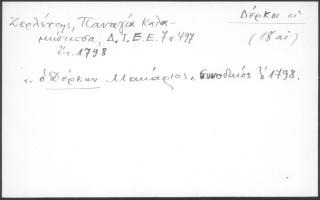 Ζερλέντης, Παναγία Καλα-
μιώτισσα, Δ.Ι.Ε.Ε. 7 σ. 497
ἔτ. 1798
Δέρκοι οἱ
(18 αἰ)
ὁ Δέρκων Μακάριος, συνοδικός 1798.